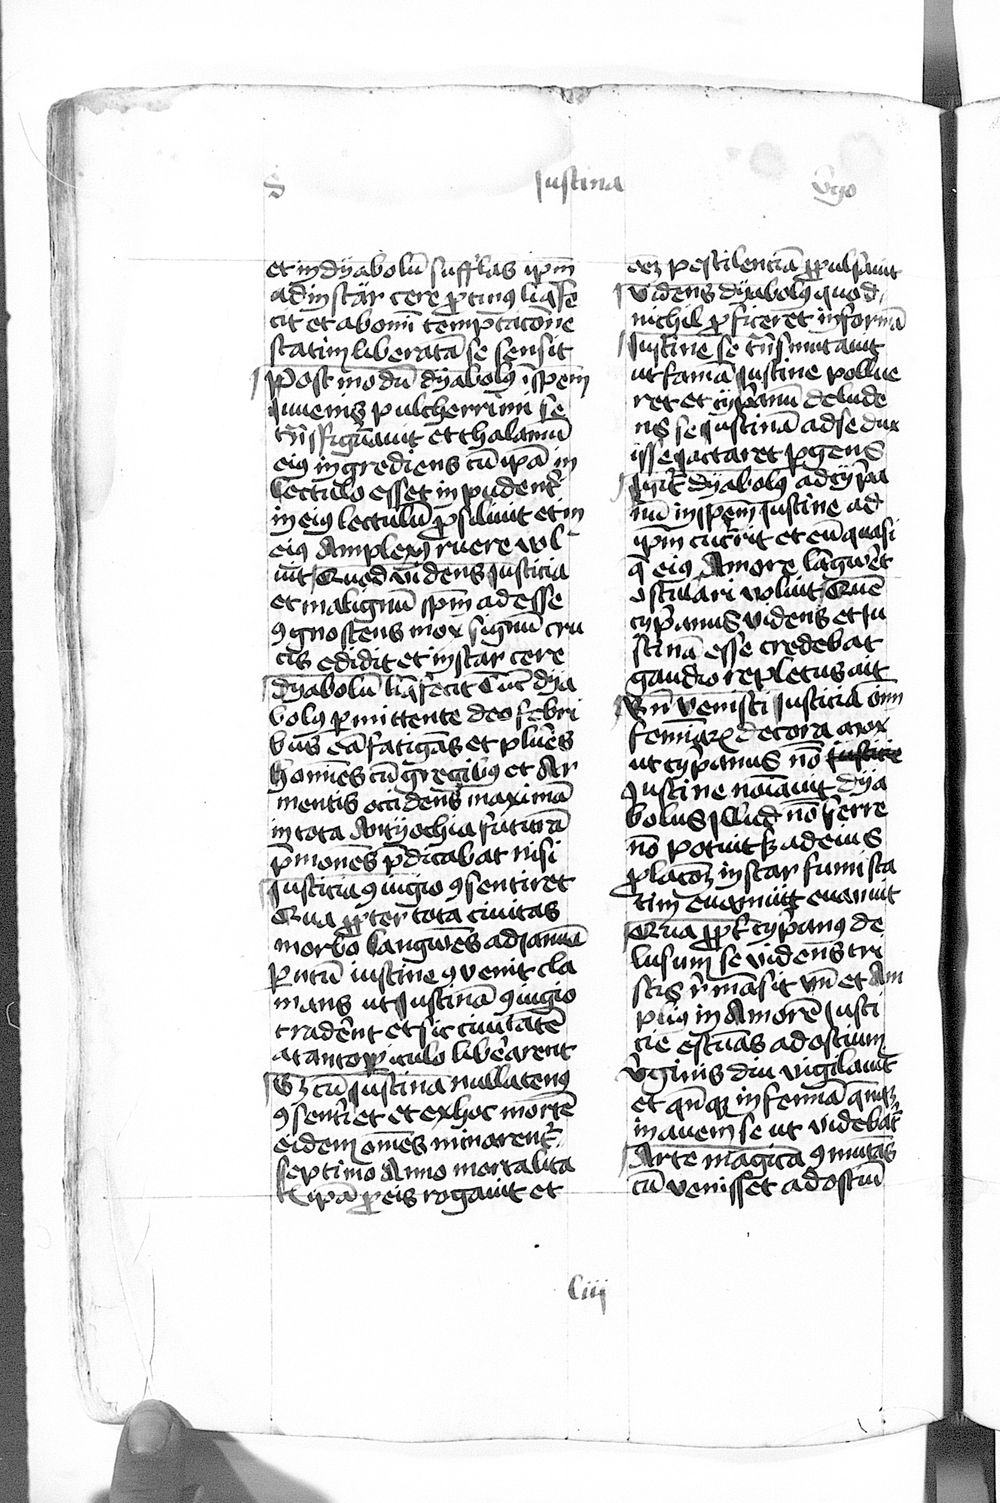 S Iustina vgo
et in dyabolū sufflās ipm̄
ad instar cere ꝓtinus liq̄fe
cit et ab omī temptacōne
statim liberatā se sensit
Post modū dyabolꝰ ī spēm
iuuenis pulcherrimi se
trāsfigurauit et thalamū
eiꝰ ingrediens cū ipā in
lectulo esset inpudent̄
in eiꝰ lectulū ꝓsiliuit et in
eiꝰ amplexꝰ ruere vol
uit Quod videns Iusticia
et malignū spm̄ adesse
ꝯgnoscens mox signū cru
cis edidit et instar cere
dyabolū liq̄fecit Tūc dya
bolꝰ ꝑmittente deo febri
bus eā fatigās et plures
homīes cū gregibꝰ et ar
mentis occidens maximā
in tota Antyochia futurā
p̄moneēs p̄dicabat nisi
Iusticia ꝯiugio ꝯsentiret
Qua ꝓpter tota ciuitas
morbo langwēs ad ianuā
parētū iustine ꝯvenit cla
mans ut Iustinā ꝯiugio
traderēt et sic ciuitatē
a tanto ꝑiculo liberarent
Sꝫ cū Iustina nullatenꝰ
ꝯsentiret et ex hoc mortē
eidem omēs minarent̄
septimo Anno mortalita
t ipā ꝓ eis rogauit et
eoꝫ pestilenciā ꝓpulsauit
Videns dyabolꝰ quod
nichil ꝓficeret in formā
Iustine se trāsmutauit
ut famā Iustine pollue
ret et cyp̄anū delude
ns se Iustinā ad se dux
isse iactaret ꝑgens
igit̄ dyabolꝰ ad cyp̄a
nū in spēm Iustine ad
ipm̄ cucurrit et eū quasi
q̄ eiꝰ Amore lāgwēt
osculari voluit Quē
cyp̄anus videns et iu
stinā esse credebat
gaudio repletus ait
Bn̄ venisti Iusticia om̄i
feminarꝫ decora mox
ut cyp̄anus nō
Iustine noīauit dya
bolus illud nō ferre
nō potuit sꝫ ad eius
ꝓlacōꝫ instar fumi sta
tim euanuit
Qua ꝓpt̄ cyp̄anꝰ de
lusum se videns tri
stis rēmāsit vn̄ et Am
pliꝰ in Amorē Iusti
cie estuās ad ostium
v̄ginis diu vigilauit
et qn̄qꝫ in feminā
in auem se ut videbat̄
Arte magica ꝯmutās
cū venisset ad ostiū
Ciij